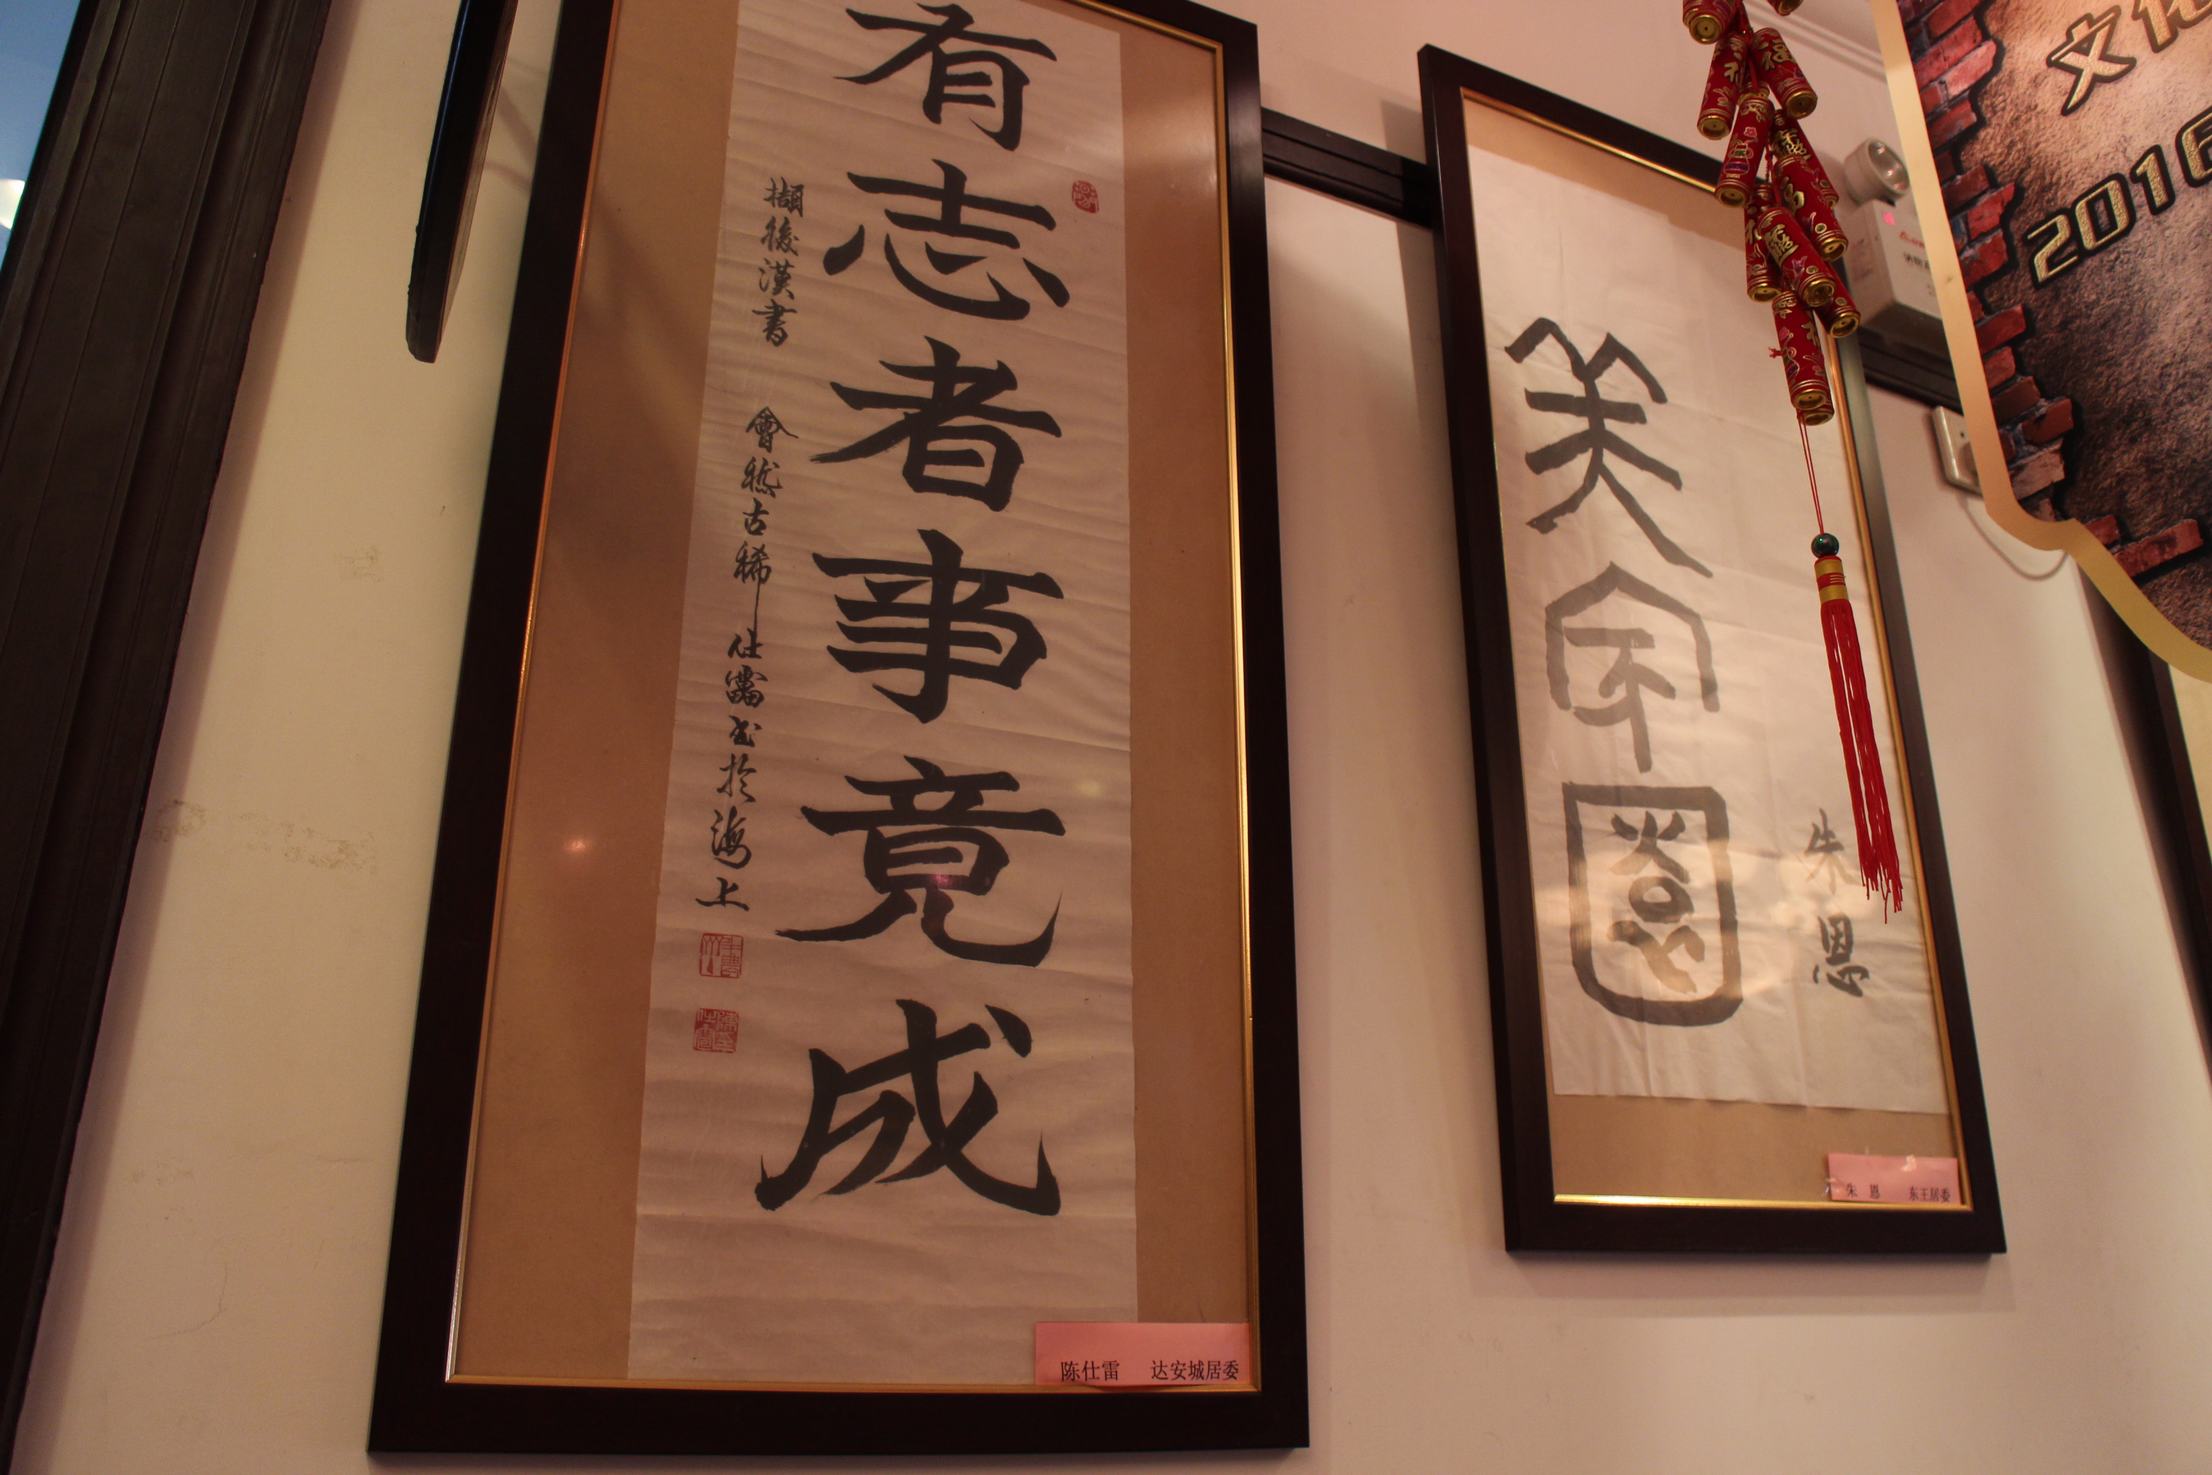 有志者事竟成
擷後漢書 會嵇古稀仕靁书於海上
陈仕雷 达安城居委
朱恩
朱 恩 东王居委
文化
2016